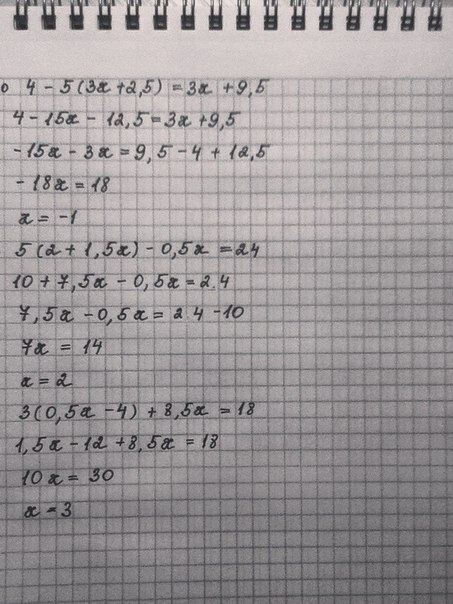 о 4 - 5(3x+2,5) = 3x + 9,5
4 - 15x - 12,5 = 3x + 9,5
- 15x - 3x = 9,5 - 4 + 12,5
- 18x = 18
x = -1
5(2 + 1,5x) - 0,5x = 24
10 + 7,5x - 0,5x = 24
7,5x - 0,5x = 24 - 10
7x = 14
x = 2
3(0,5x - 4) + 8,5x = 18
1,5x - 12 + 8,5x = 18
10x = 30
x = 3